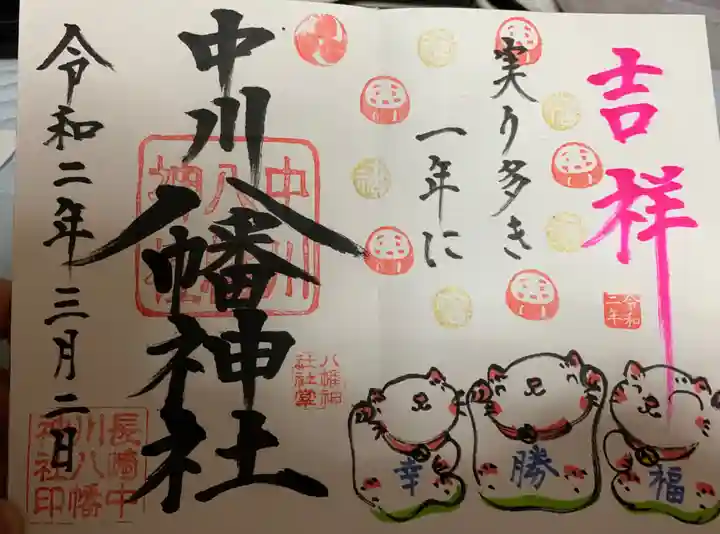 吉祥
実り多き
一年に
令和
二年
福
勝
幸
中川八幡神社
中川
八幡
神社
令和二年三月二日
長崎中
川八幡
神社印